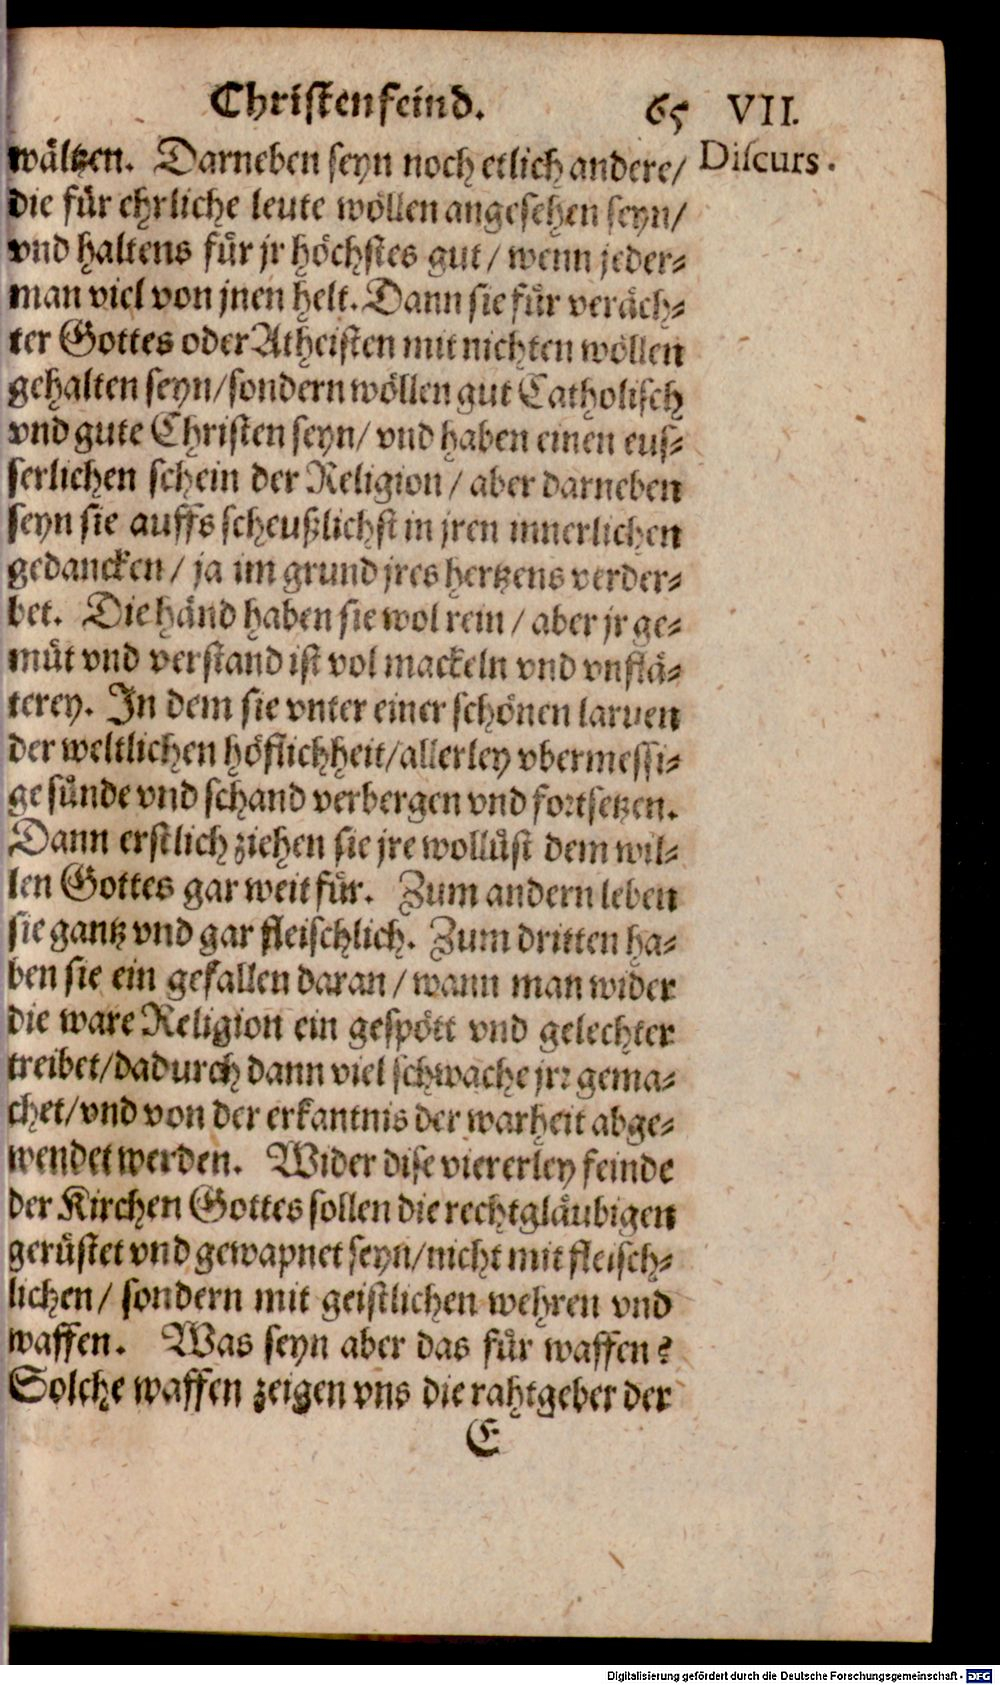 Christenfeind. 65 VII.
Discurs.
wältzen. Darneben seyn noch etlich andere/
die für ehrliche leute wöllen angesehen seyn/
vnd haltens für jr höchstes gut/ wenn jeder-
man viel von jnen helt. Dann sie für veräch-
ter Gottes oder Atheisten mit nichten wöllen
gehalten seyn/sondern wöllen gut Catholisch
vnd gute Christen seyn/ vnd haben einen eus-
serlichen schein der Religion/ aber darneben
seyn sie auffs scheußlichst in jren innerlichen
gedancken/ ja im grund jres hertzens verder-
bet. Die händ haben sie wol rein/ aber jr ge-
müt vnd verstand ist vol mackeln vnd vnflä-
terey. In dem sie vnter einer schönen larven
der weltlichen höflichheit/allerley vbermessi-
ge sünde vnd schand verbergen vnd fortsetzen.
Dann erstlich ziehen sie jre wollüst dem wil-
len Gottes gar weit für. Zum andern leben
sie gantz vnd gar fleischlich. Zum dritten ha-
ben sie ein gefallen daran/ wann man wider
die ware Religion ein gespött vnd gelechter
treibet/dadurch dann viel schwache jrr gema-
chet/vnd von der erkantnis der warheit abge-
wendet werden. Wider dise viererley feinde
der Kirchen Gottes sollen die rechtgläubigen
gerüstet vnd gewapnet seyn/nicht mit fleisch-
lichen/ sondern mit geistlichen wehren vnd
waffen. Was seyn aber das für waffen?
Solche waffen zeigen vns die rahtgeber der
E
Digitalisierung gefördert durch die Deutsche Forschungsgemeinschaft - DFG